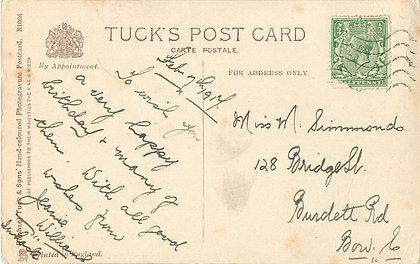 TUCK'S POST CARD
CARTE POSTALE.
By Appointment.
FOR ADDRESS ONLY.
Sons' Hand-coloured Photogravure Postcard. R1066
ART PUBLISHERS TO THEIR MAJESTIES THE KING & QUEEN.
Printed in England.
Feb 7th 1917
To wish you
a very happy
birthday & many of
them. With all good
wishes from
Jennie
Williams
Miss M. Simmonds
128 Bridge St.
Burdett Rd
Bow. E